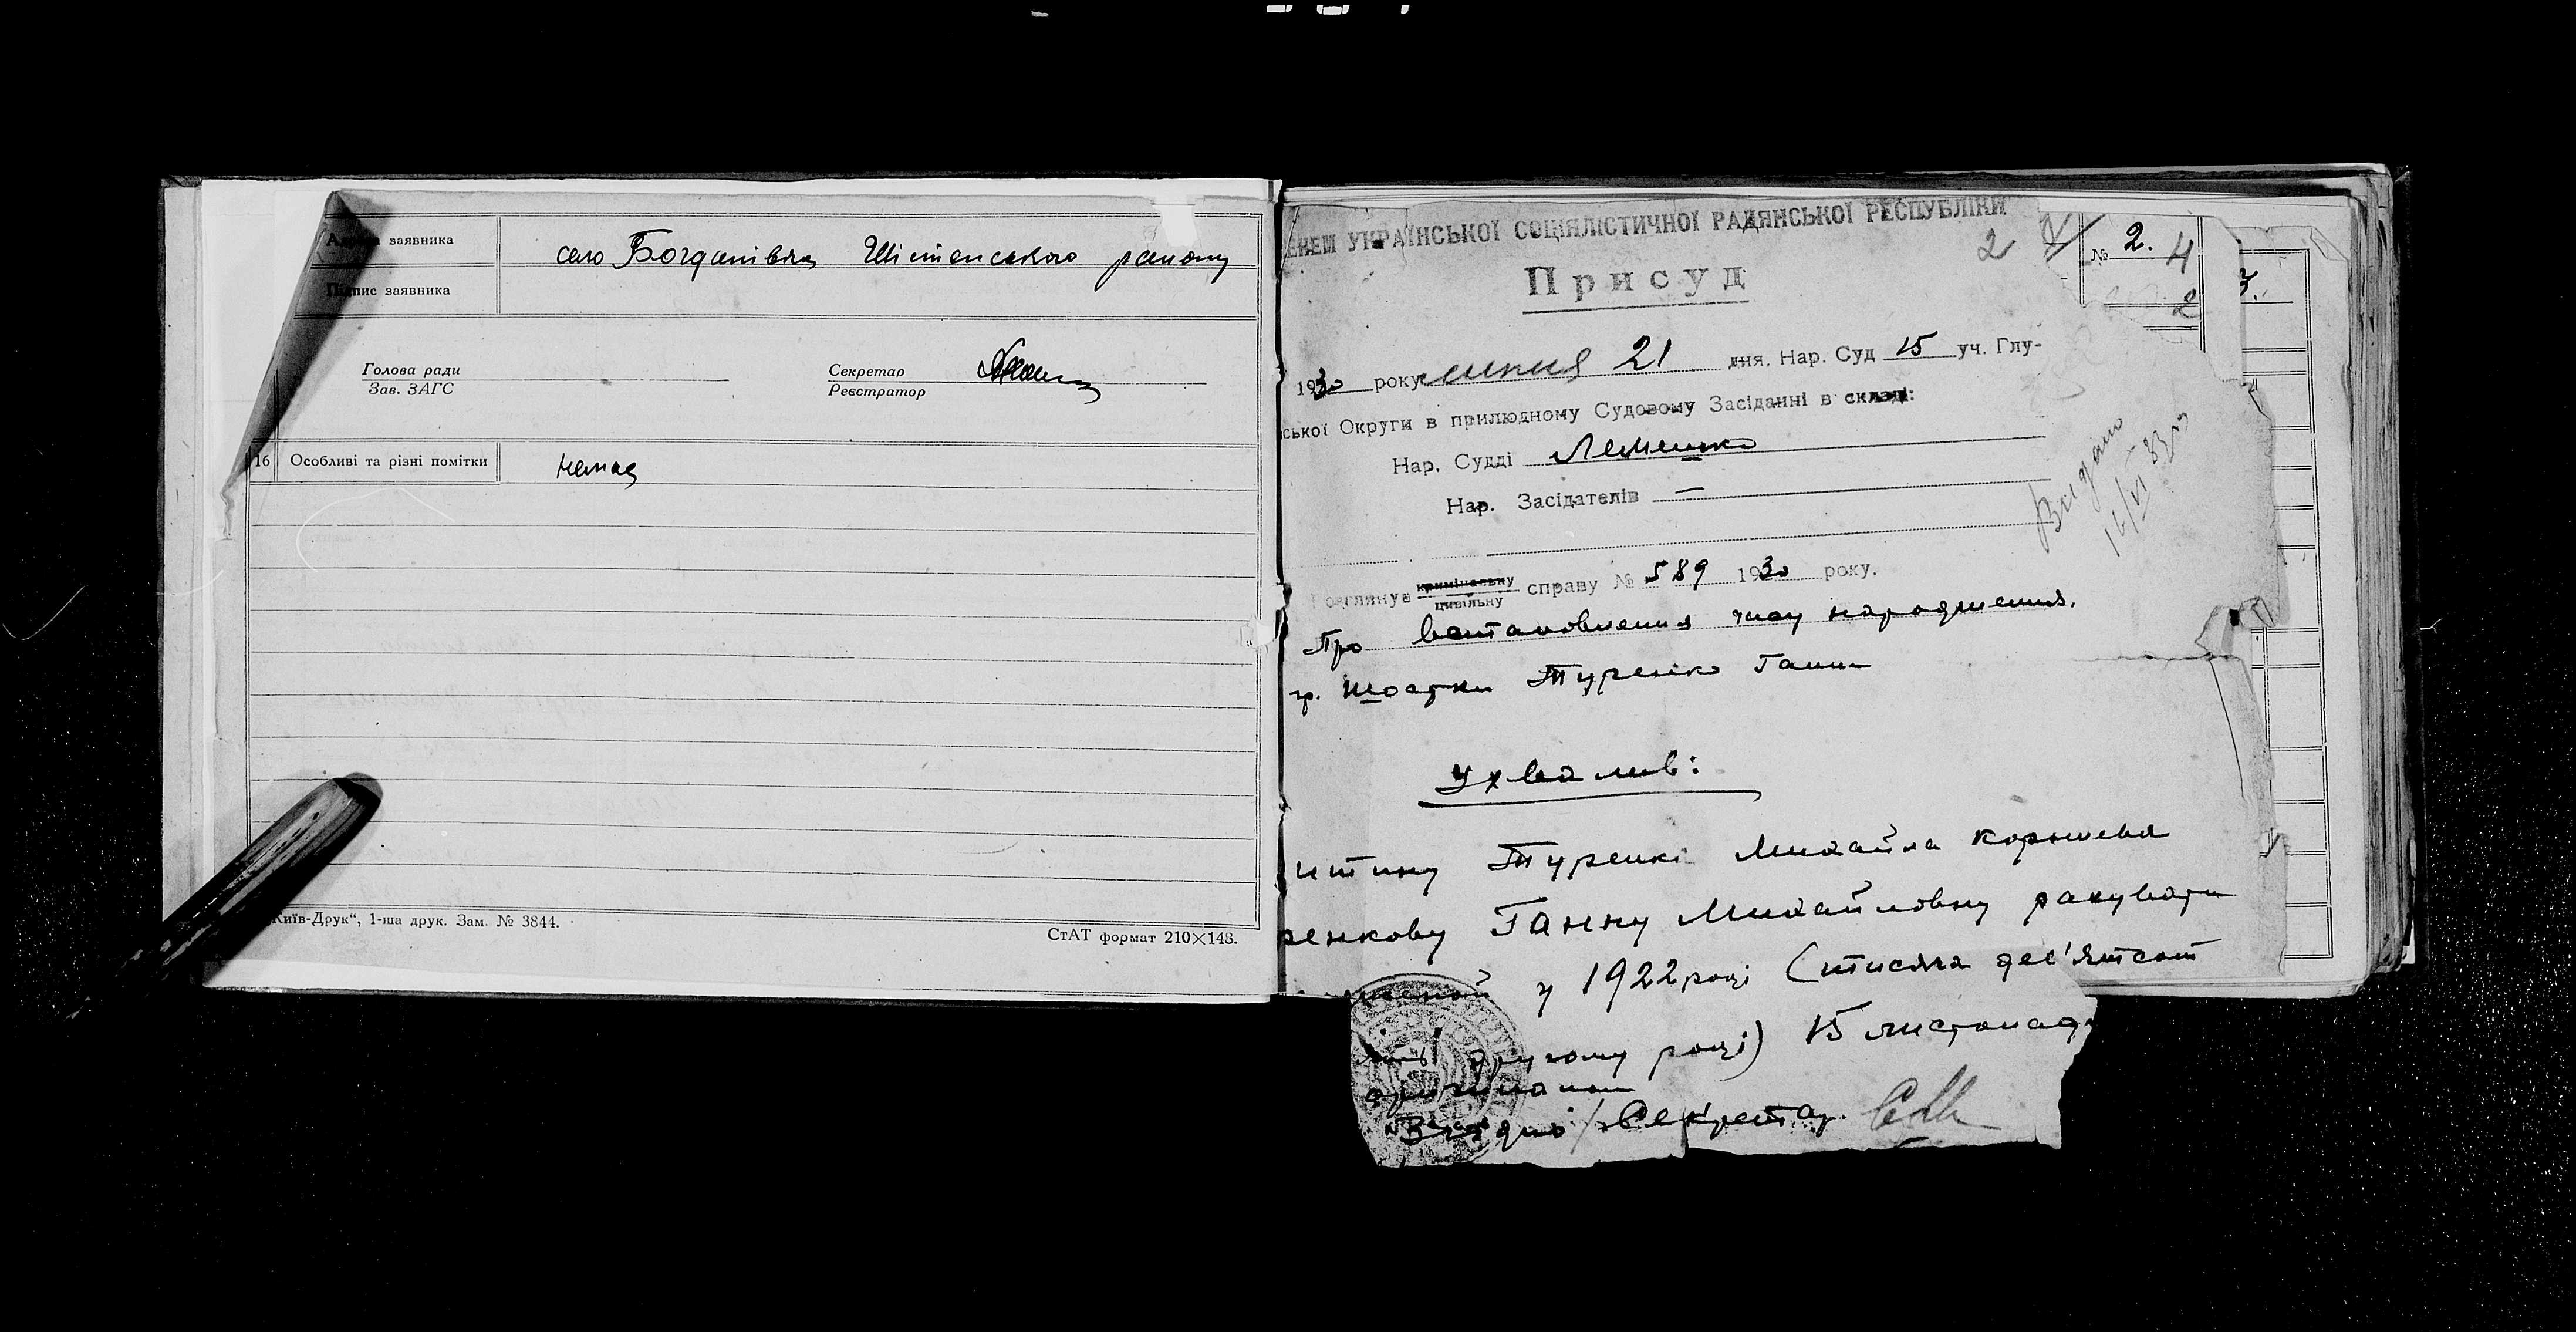 Адреса заявника
село Богданівка Шістенського району
Підпис заявника
Голова ради
Зав. ЗАГС
Секретар
Реєстратор
16 Особливі та різні помітки
немає
Київ-Друк“, 1-ша друк. Зам. № 3844.
СтАТ формат 210×148.
ЕНЕМ УКРАЇНСЬКОЇ СОЦІЯЛІСТИЧНОЇ РАДЯНСЬКОЇ РЕСПУБЛІКИ
2
№ 2. 4
2
3.
Присуд
1930 року липня 21 дня. Нар. Суд 15 уч. Глу-
ської Округи в прилюдному Судовому Засіданні в складі:
Нар. Судді Лемешко
Нар. Засідателів —
Видано
16/VI 33 р
Розглянув кримінальну цивільну справу № 589 1930 року.
Про встановлення часу народження.
гр. Шостки Туренко Ганни
Ухвалив:
итину Туренкі Михайла
ренкову Ганну Михайловну рахувати
у 1922 році (тисяча дев'ятсот
другому році) 15 листопада
Секретар